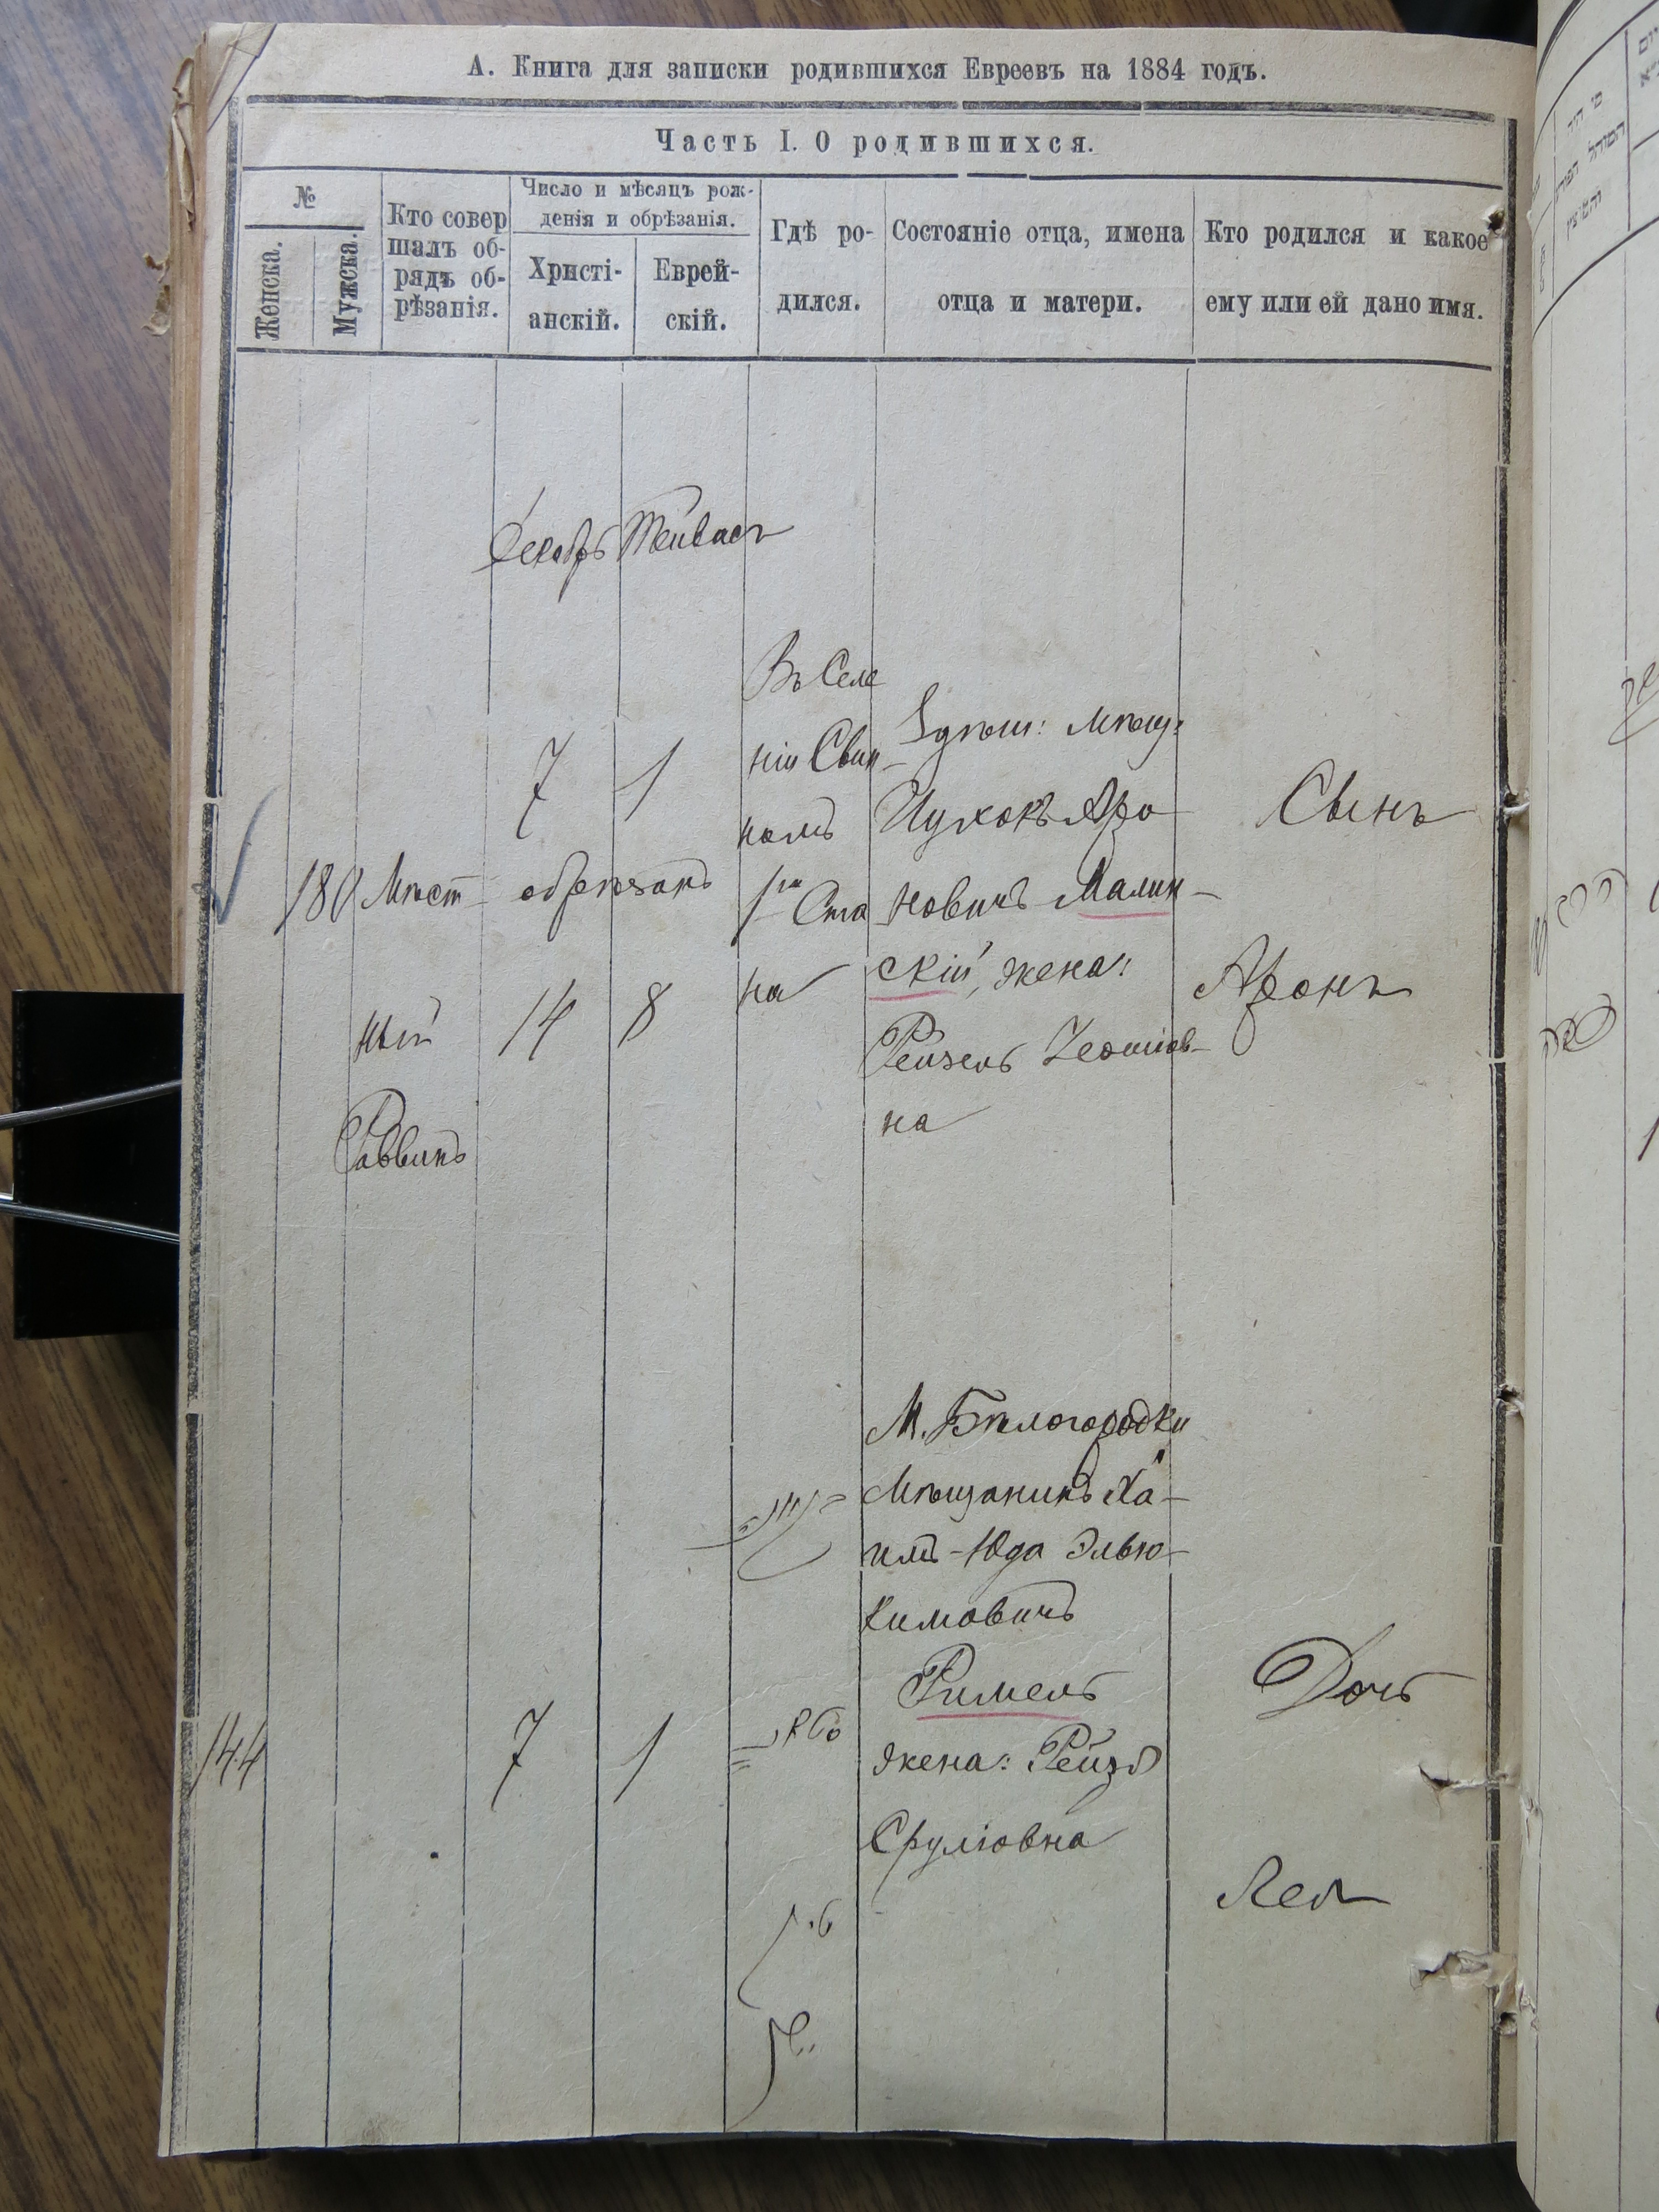 А. Книга для записки родившихся Евреевъ на 1884 годъ.
Часть I. О родившихся.
№
Женска.
Мужска.
Кто совер
шалъ об-
рядъ об-
рѣзанія.
Число и мѣсяцъ рож-
денія и обрѣзанія.
Христі-
анскій.
Еврей-
скій.
Гдѣ ро-
дился.
Состояніе отца, имена
отца и матери.
Кто родился и какое
ему или ей дано имя.
Декабрь Тейвасъ
180
Мѣст
ный
Раввинъ
7 1
обрѣзанъ
14 8
Въ Селе
ніи Свин
номъ
1го Ста
на
мѣщ:
Ицхокъ Аро
новичъ Малин-
скій, жена:
Рейзель
на
Сынъ
Аронъ
144
7 1
М. Бѣлогородки
Мѣщанинъ Ха-
имъ-Юда Элью-
кимовичъ
Римель
жена: Рейзя
Сруліовна
Дочь
Лея